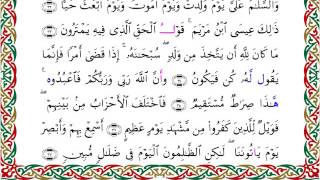 وَٱلسَّلَـٰمُ عَلَىَّ يَوْمَ وُلِدتُّ وَيَوْمَ أَمُوتُ وَيَوْمَ أُبْعَثُ حَيًّا ﴿٣٣﴾
ذَٰلِكَ عِيسَى ٱبْنُ مَرْيَمَ ۚ قَوْلَ ٱلْحَقِّ ٱلَّذِى فِيهِ يَمْتَرُونَ ﴿٣٤﴾
مَا كَانَ لِلَّهِ أَن يَتَّخِذَ مِن وَلَدٍ ۖ سُبْحَـٰنَهُۥٓ ۚ إِذَا قَضَىٰٓ أَمْرًا فَإِنَّمَا
يَقُولُ لَهُۥ كُن فَيَكُونُ ﴿٣٥﴾ وَأَنَّ ٱللَّهَ رَبِّى وَرَبُّكُمْ فَٱعْبُدُوهُ ۚ
هَـٰذَا صِرَٰطٌ مُّسْتَقِيمٌ ﴿٣٦﴾ فَٱخْتَلَفَ ٱلْأَحْزَابُ مِنۢ بَيْنِهِمْ ۖ
فَوَيْلٌ لِّلَّذِينَ كَفَرُوا۟ مِن مَّشْهَدِ يَوْمٍ عَظِيمٍ ﴿٣٧﴾ أَسْمِعْ بِهِمْ وَأَبْصِرْ
يَوْمَ يَأْتُونَنَا ۖ لَـٰكِنِ ٱلظَّـٰلِمُونَ ٱلْيَوْمَ فِى ضَلَـٰلٍ مُّبِينٍ ﴿٣٨﴾